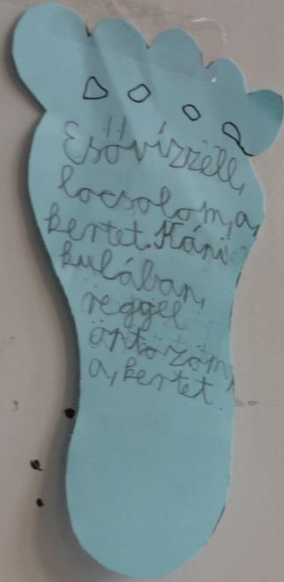 Esővízzell,
locsolom, a,
kertet. Káni
kulában,
reggel
öntözöm,
a, kertet